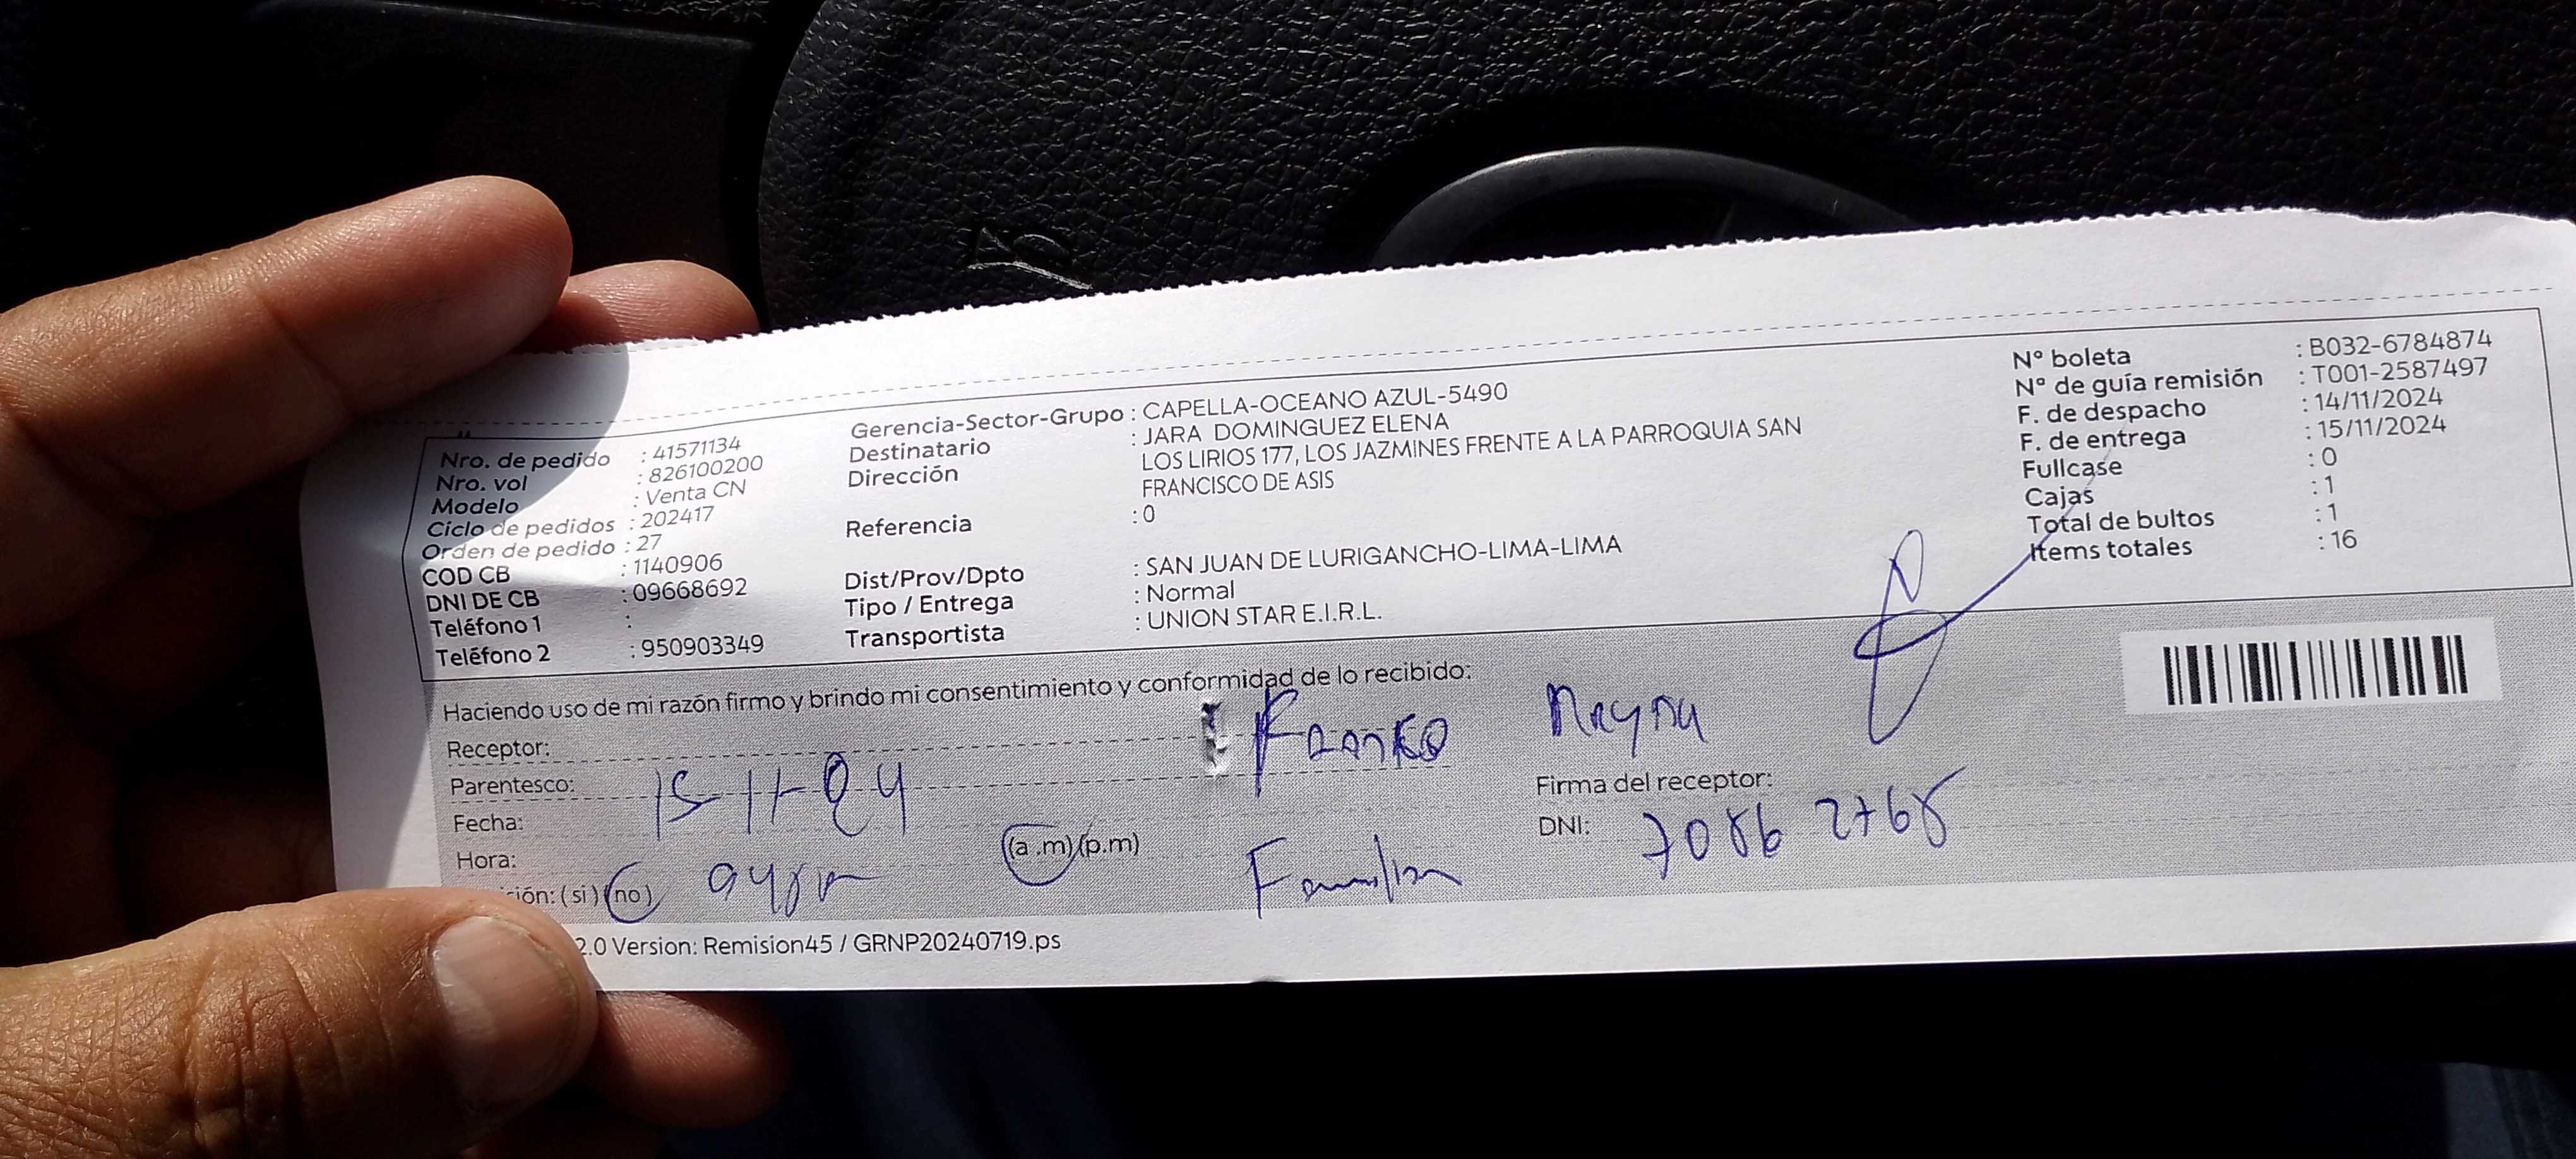 Nro. de pedido : 41571134
Nro. vol : 826100200
Modelo : Venta CN
Ciclo de pedidos : 202417
Orden de pedido : 27
COD CB : 1140906
DNI DE CB : 09668692
Teléfono 1 :
Teléfono 2 : 950903349
Gerencia-Sector-Grupo : CAPELLA-OCEANO AZUL-5490
Destinatario : JARA DOMINGUEZ ELENA
Dirección LOS LIRIOS 177, LOS JAZMINES FRENTE A LA PARROQUIA SAN
FRANCISCO DE ASIS
Referencia : 0
Dist/Prov/Dpto : SAN JUAN DE LURIGANCHO-LIMA-LIMA
Tipo / Entrega : Normal
Transportista : UNION STAR E.I.R.L.
N° boleta : B032-6784874
N° de guía remisión : T001-2587497
F. de despacho : 14/11/2024
F. de entrega : 15/11/2024
Fullcase : 0
Cajas : 1
Total de bultos : 1
Items totales : 16
Haciendo uso de mi razón firmo y brindo mi consentimiento y conformidad de lo recibido:
Receptor: Franko
Parentesco:
Fecha: 15-11-24
Hora: (a .m) (p.m)
ión: ( si ) (no)
Firma del receptor:
DNI: 7086 2768
2.0 Version: Remision45 / GRNP20240719.ps